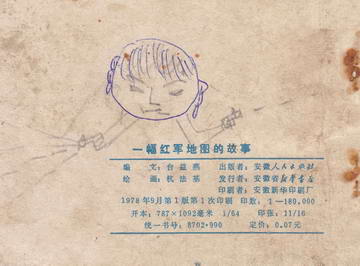 一幅红军地图的故事
编 文：台益燕 出版者：安徽人民出版社
绘 画：杭法基 发行者：安徽省新华书店
印刷者：安徽新华印刷厂
1978年9月第1版第1次印刷 印数：1—180,000
开本：787×1092毫米 1/64 印张：11/16
统一书号：8702·990 定价：0.07元